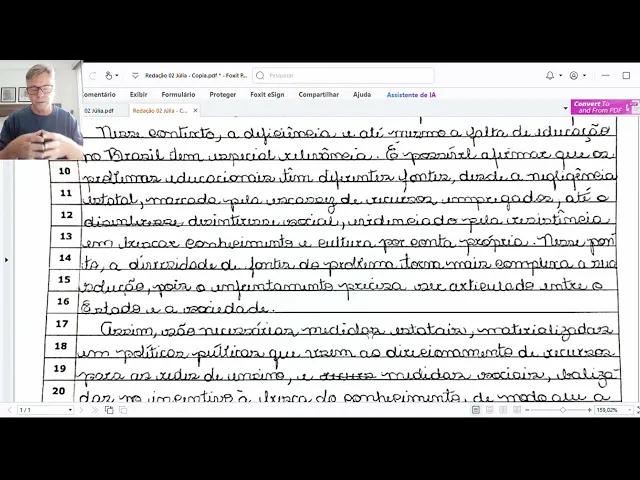 Redação 02 Júlia - Copia.pdf * - Foxit P...
Pesquisar
omentário Exibir Formulário Proteger Foxit eSign Compartilhar Ajuda Assistente de IA
02 Júlia.pdf Redação 02 Júlia - C...
Convert To and From PDF
Nesse contexto, a deficiência e até mesmo a falta de educação
no Brasil tem especial relevância. É possível afirmar que os
10 problemas educacionais têm diferentes fontes, desde a negligência
11 estatal, marcada pela escassez de recursos empregados, até o
12 desinteresse desinteresse social, evidenciado pela resistência
13 em buscar conhecimento e cultura por conta própria. Nesse pon
14 to, a diversidade de fontes do problema torna mais complexa a sua
15 solução, pois o enfrentamento precisa ser articulado entre o
16 Estado e a sociedade.
17 Assim, são necessárias medidas estatais, materializadas
18 em políticas públicas que visem ao direcionamento de recursos
19 para as redes de ensino, e medidas sociais, baliza-
20 das no incentivo à busca do conhecimento, de modo que a
1 / 1
159,02%